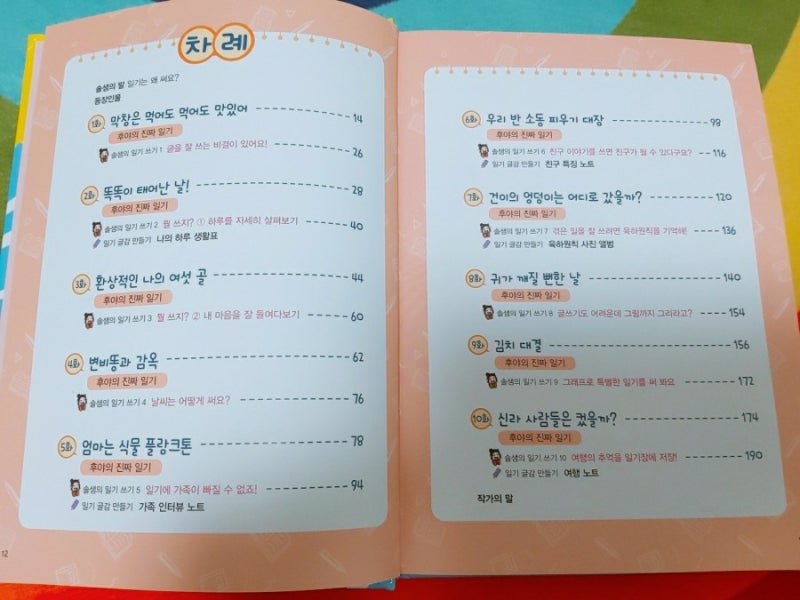 차례
솔샘의 말 일기는 왜 써요?
등장인물
1화 막창은 먹어도 먹어도 맛있어 14
후야의 진짜 일기
솔샘의 일기 쓰기 1 글을 잘 쓰는 비결이 있어요! 26
2화 똑똑이 태어난 날! 28
후야의 진짜 일기
솔샘의 일기 쓰기 2 뭘 쓰지? ① 하루를 자세히 살펴보기 40
일기 글감 만들기 나의 하루 생활표
3화 환상적인 나의 여섯 골 44
후야의 진짜 일기
솔샘의 일기 쓰기 3 뭘 쓰지? ② 내 마음을 잘 들여다보기 60
4화 변비똥과 감옥 62
후야의 진짜 일기
솔샘의 일기 쓰기 4 날씨는 어떻게 써요? 76
5화 엄마는 식물 플랑크톤 78
후야의 진짜 일기
솔샘의 일기 쓰기 5 일기에 가족이 빠질 수 없죠! 94
일기 글감 만들기 가족 인터뷰 노트
12
6화 우리 반 소동 피우기 대장 98
후야의 진짜 일기
솔샘의 일기 쓰기 6 친구 이야기를 쓰면 친구가 될 수 있다구요? 116
일기 글감 만들기 친구 특징 노트
7화 건이의 엉덩이는 어디로 갔을까? 120
후야의 진짜 일기
솔샘의 일기 쓰기 7 겪은 일을 잘 쓰려면 육하원칙을 기억해! 136
일기 글감 만들기 육하원칙 사진 앨범
8화 귀가 깨질 뻔한 날 140
후야의 진짜 일기
솔샘의 일기 쓰기 8 글쓰기도 어려운데 그림까지 그리라고? 154
9화 김치 대결 156
후야의 진짜 일기
솔샘의 일기 쓰기 9 그래프로 특별한 일기를 써 봐요 172
10화 신라 사람들은 컸을까? 174
후야의 진짜 일기
솔샘의 일기 쓰기 10 여행의 추억을 일기장에 저장! 190
일기 글감 만들기 여행 노트
작가의 말